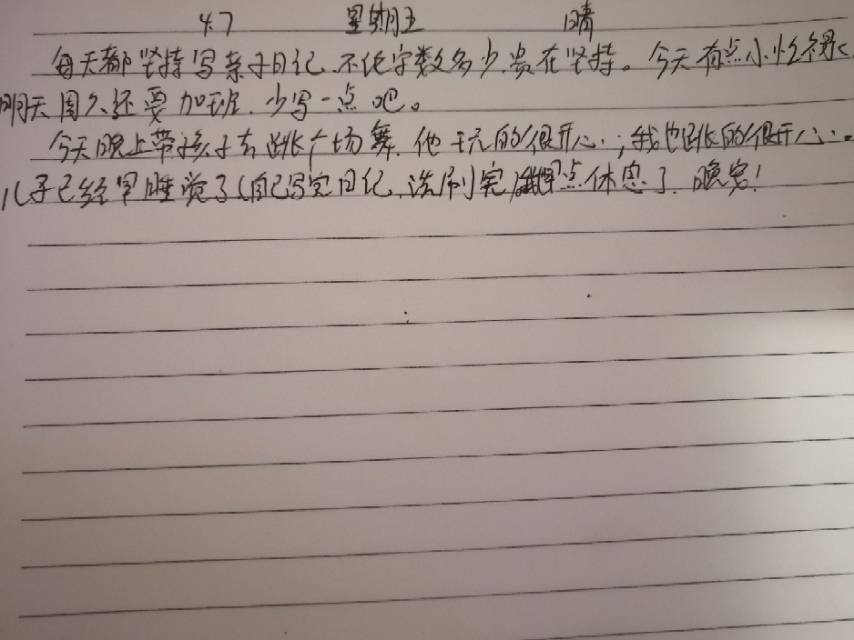 4.7 星期五 晴
每天都坚持写亲子日记,不论字数多少,贵在坚持。今天有点小忙
明天周六还要加班,少写一点吧。
今天晚上带孩子去跳广场舞,他玩的很开心,我也跳的很开心。
儿子已经早睡觉了,自己写完日记,洗刷完 早点休息了,晚安!